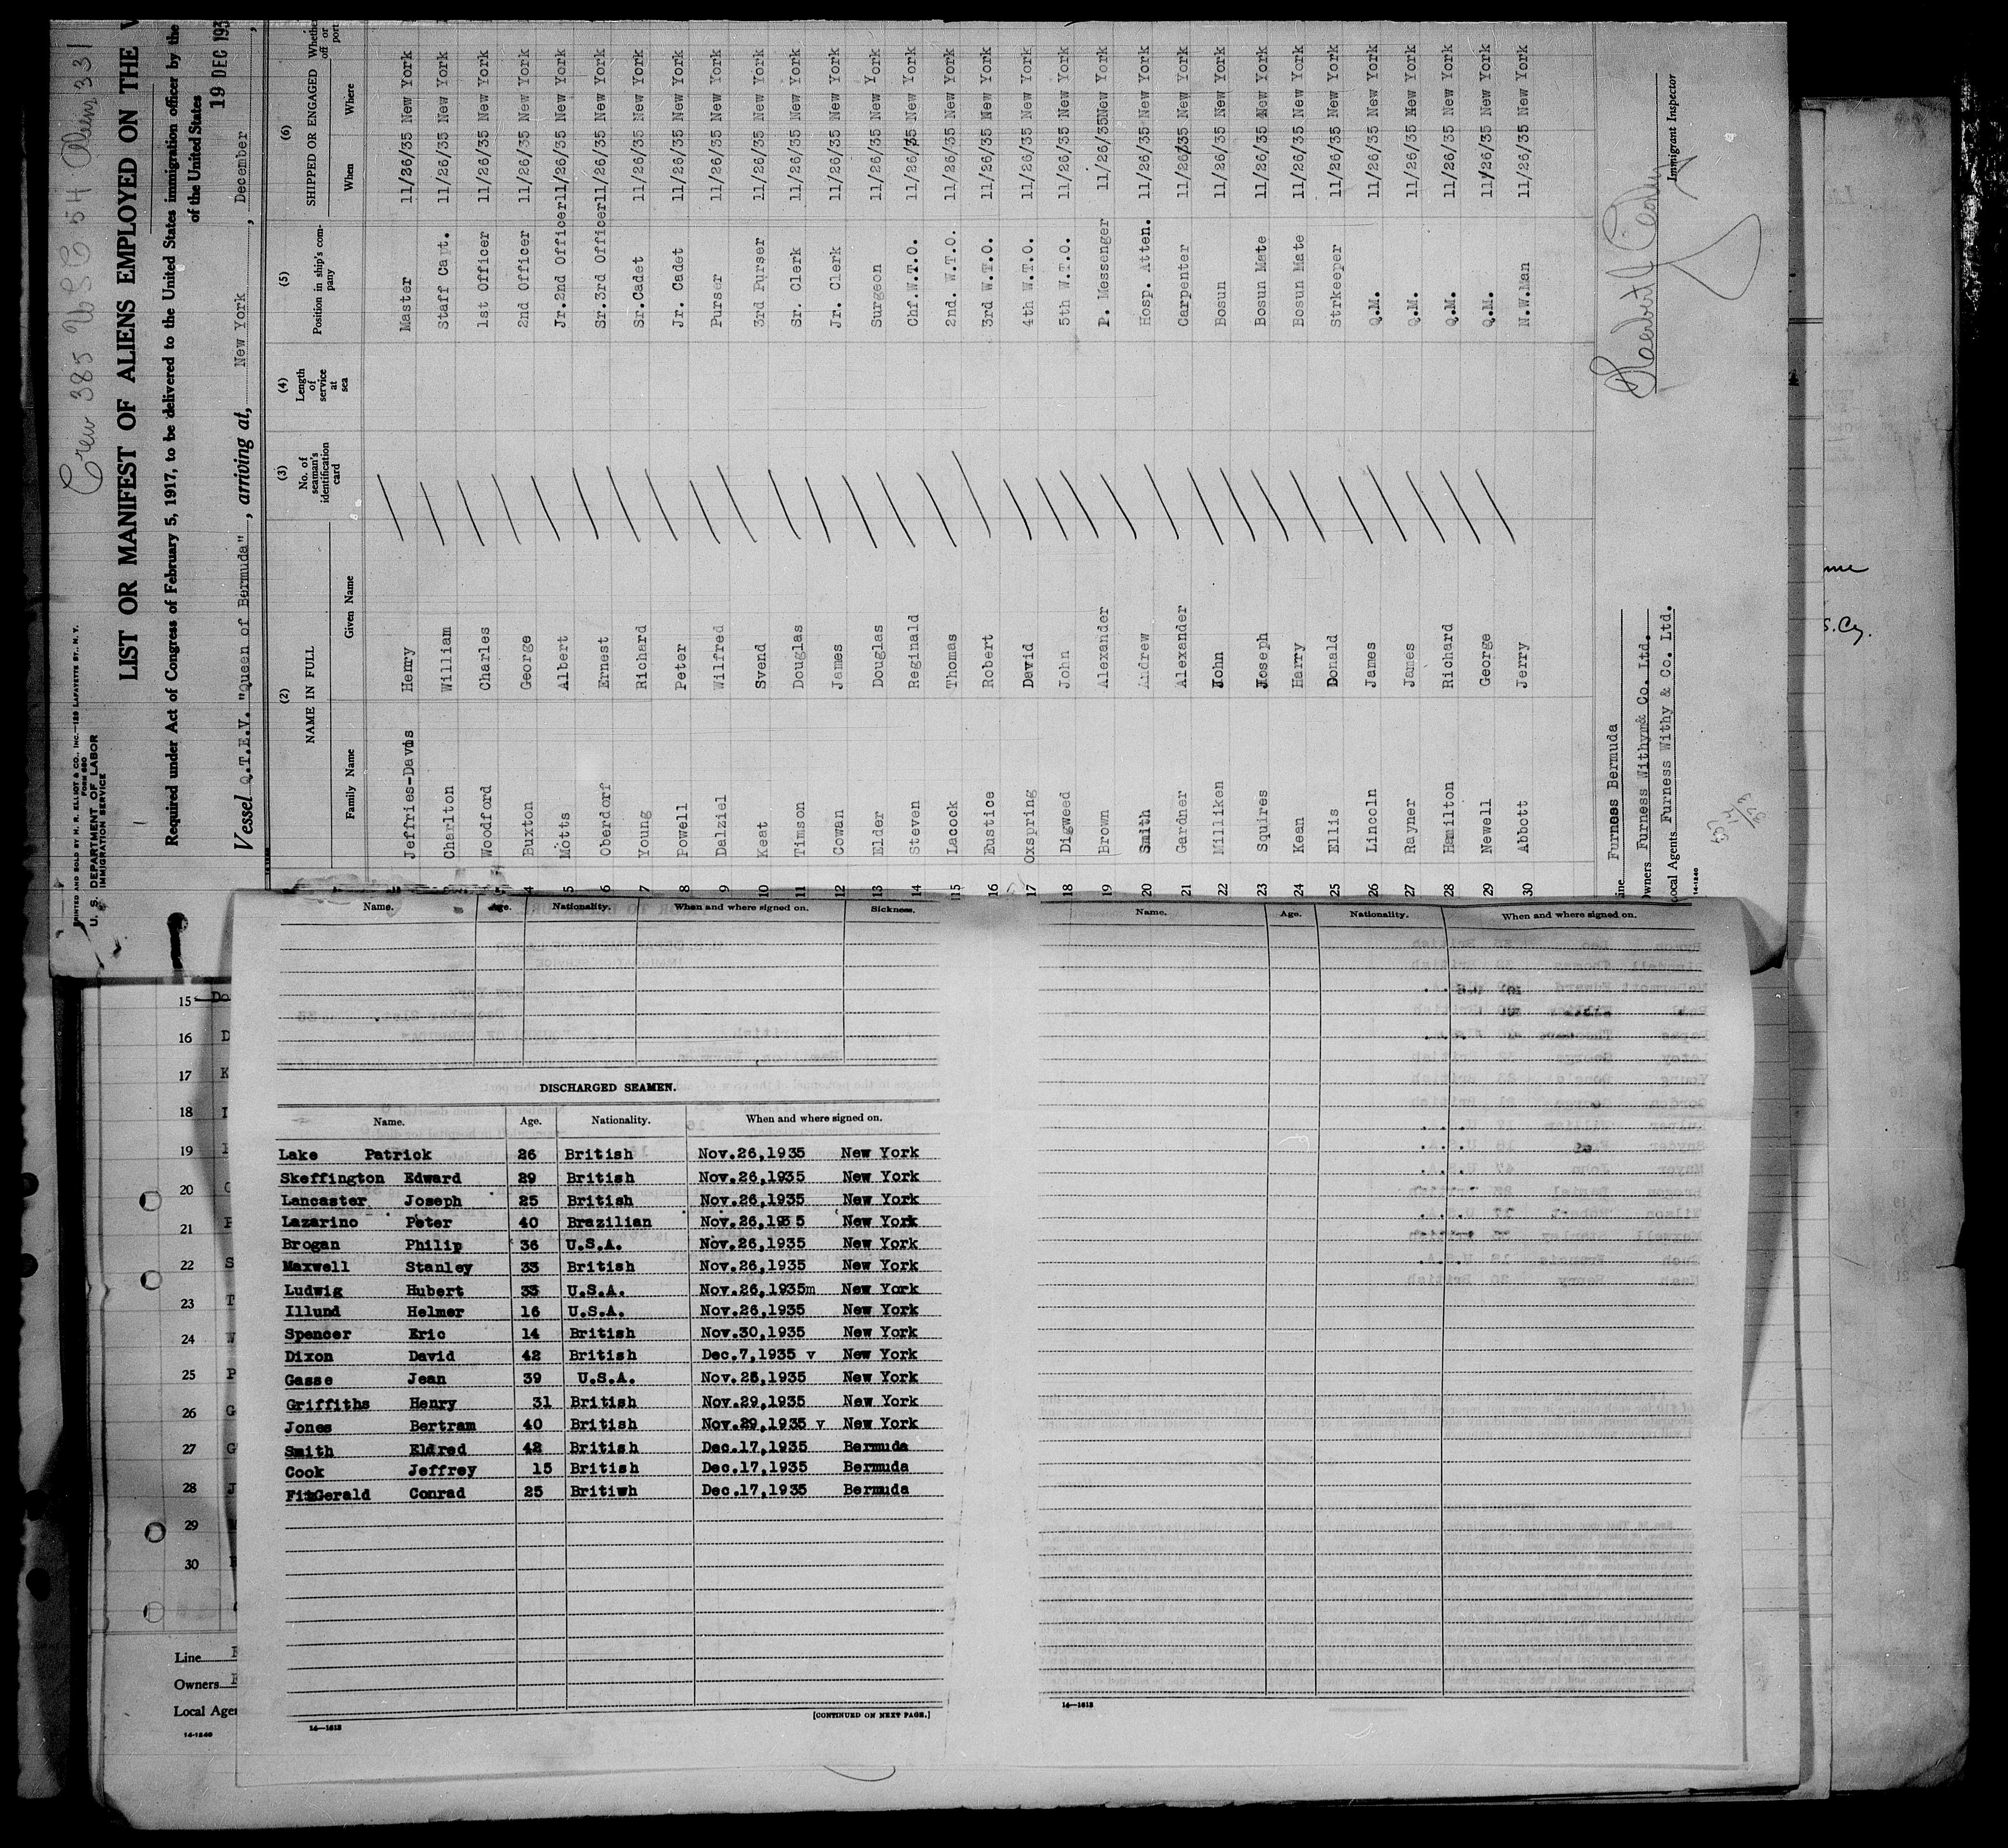 Crew 385 USC 54 Aliens 331
PRINTED AND SOLD BY H. R. ELLIOT & CO., INC.—129 LAFAYETTE ST., N. Y.
Form 680
U. S. DEPARTMENT OF LABOR
IMMIGRATION SERVICE
LIST OR MANIFEST OF ALIENS EMPLOYED ON THE
Required under Act of Congress of February 5, 1917, to be delivered to the United States immigration officer by the
of the United States
19 DEC 193
Vessel Q.T.E.V. "Queen of Bermuda", arriving at, New York, December,
(2) (3) (4) (5) (6)
NAME IN FULL No. of seaman's identification card Length of service at sea Position in ship's company SHIPPED OR ENGAGED
Family Name Given Name When Where
Jeffries-Davis Henry Master 11/26/35 New York
Charlton William Staff Capt. 11/26/35 New York
Woodford Charles 1st Officer 11/26/35 New York
4 Buxton George 2nd Officer 11/26/35 New York
5 Motts Albert Jr.2nd Officer 11/26/35 New York
6 Oberdorf Ernest Sr.3rd Officer 11/26/35 New York
7 Young Richard Sr.Cadet 11/26/35 New York
8 Powell Peter Jr. Cadet 11/26/35 New York
9 Dalziel Wilfred Purser 11/26/35 New York
10 Keat Svend 3rd Purser 11/26/35 New York
11 Timson Douglas Sr. Clerk 11/26/35 New York
12 Cowan James Jr. Clerk 11/26/35 New York
13 Elder Douglas Surgeon 11/26/35 New York
14 Steven Reginald Chf.W.T.O. 11/26/35 New York
15 Lacock Thomas 2nd. W.T.O. 11/26/35 New York
16 Eustice Robert 3rd W.T.O. 11/26/35 New York
17 Oxspring David 4th W.T.O. 11/26/35 New York
18 Digweed John 5th W.T.O. 11/26/35 New York
19 Brown Alexander P. Messenger 11/26/35 New York
20 Smith Andrew Hosp. Atten. 11/26/35 New York
21 Gardner Alexander Carpenter 11/26/35 New York
22 Milliken John Bosun 11/26/35 New York
23 Squires Joseph Bosun Mate 11/26/35 New York
24 Kean Harry Bosun Mate 11/26/35 New York
25 Ellis Donald Strkeeper 11/26/35 New York
26 Lincoln James Q.M. 11/26/35 New York
27 Rayner James Q.M. 11/26/35 New York
28 Hamilton Richard Q.M. 11/26/35 New York
29 Newell George Q.M. 11/26/35 New York
30 Abbott Jerry N.W.Man 11/26/35 New York
Furness Bermuda
Furness Withym& Co. Ltd.
Local Agents Furness Withy & Co. Ltd.
14-1240
Immigrant Inspector
Name. Age. Nationality. When and where signed on. Sickness.
Name. Age. Nationality. When and where signed on.
DISCHARGED SEAMEN.
Name. Age. Nationality. When and where signed on.
Lake Patrick 26 British Nov.26,1935 New York
Skeffington Edward 29 British Nov.26,1935 New York
Lancaster Joseph 25 British Nov.26,1935 New York
Lazarino Peter 40 Brazilian Nov.26,1935 New York
Brogan Philip 36 U.S.A. Nov.26,1935 New York
Maxwell Stanley 33 British Nov.26,1935 New York
Ludwig Hubert 33 U.S.A. Nov.26,1935m New York
Illund Helmer 16 U.S.A. Nov.26,1935 New York
Spencer Eric 14 British Nov.30,1935 New York
Dixon David 42 British Dec.7,1935 v New York
Gasse Jean 39 U.S.A. Nov.26,1935 New York
Griffiths Henry 31 British Nov.29,1935 New York
Jones Bertram 40 British Nov.29,1935 v New York
Smith Eldred 42 British Dec.17,1935 Bermuda
Cook Jeffrey 15 British Dec.17,1935 Bermuda
FitzGerald Conrad 25 Britiwh Dec.17,1935 Bermuda
14—1613
[CONTINUED ON NEXT PAGE.]
14—1613
15 Do
16 D
17 K
18
19
20
21
22 S
23 T
24 W
25 P
26 G
27 G
28 J
29
30
Line
Owners
Local Agen
14-1240
S. Cy.